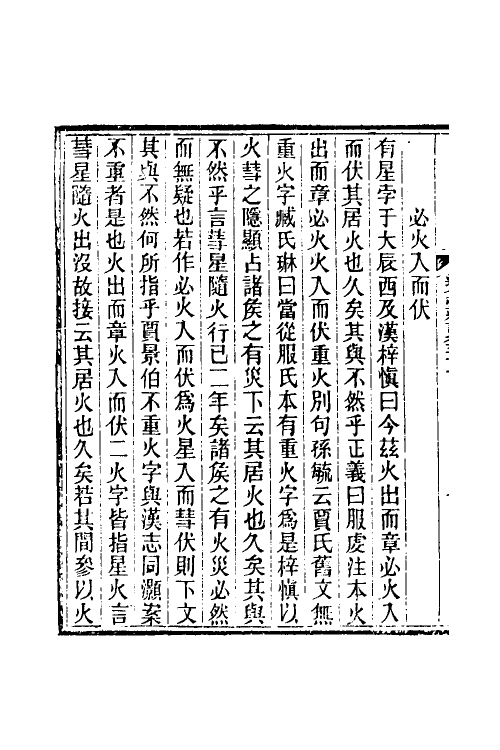 必火入而伏
有星孛于大辰西及漢梓慎曰今茲火出而章必火入
而伏其居火也久矣其與不然乎正義曰服虔注本火
出而章必火火入而伏重火別句孫毓云賈氏舊文無
重火字臧氏琳曰當從服氏本有重火字為是梓慎以
火彗之隱顯占諸侯之有災下云其居火也久矣其與
不然乎言彗星隨火行已二年矣諸侯之有火災必然
而無疑也若作必火入而伏為火星入而彗伏則下文
其與不然何所指乎賈景伯不重火字與漢志同灝案
不重者是也火出而章火入而伏二火字皆指星火言
彗星隨火出沒故接云其居火也久矣若其閒參以火